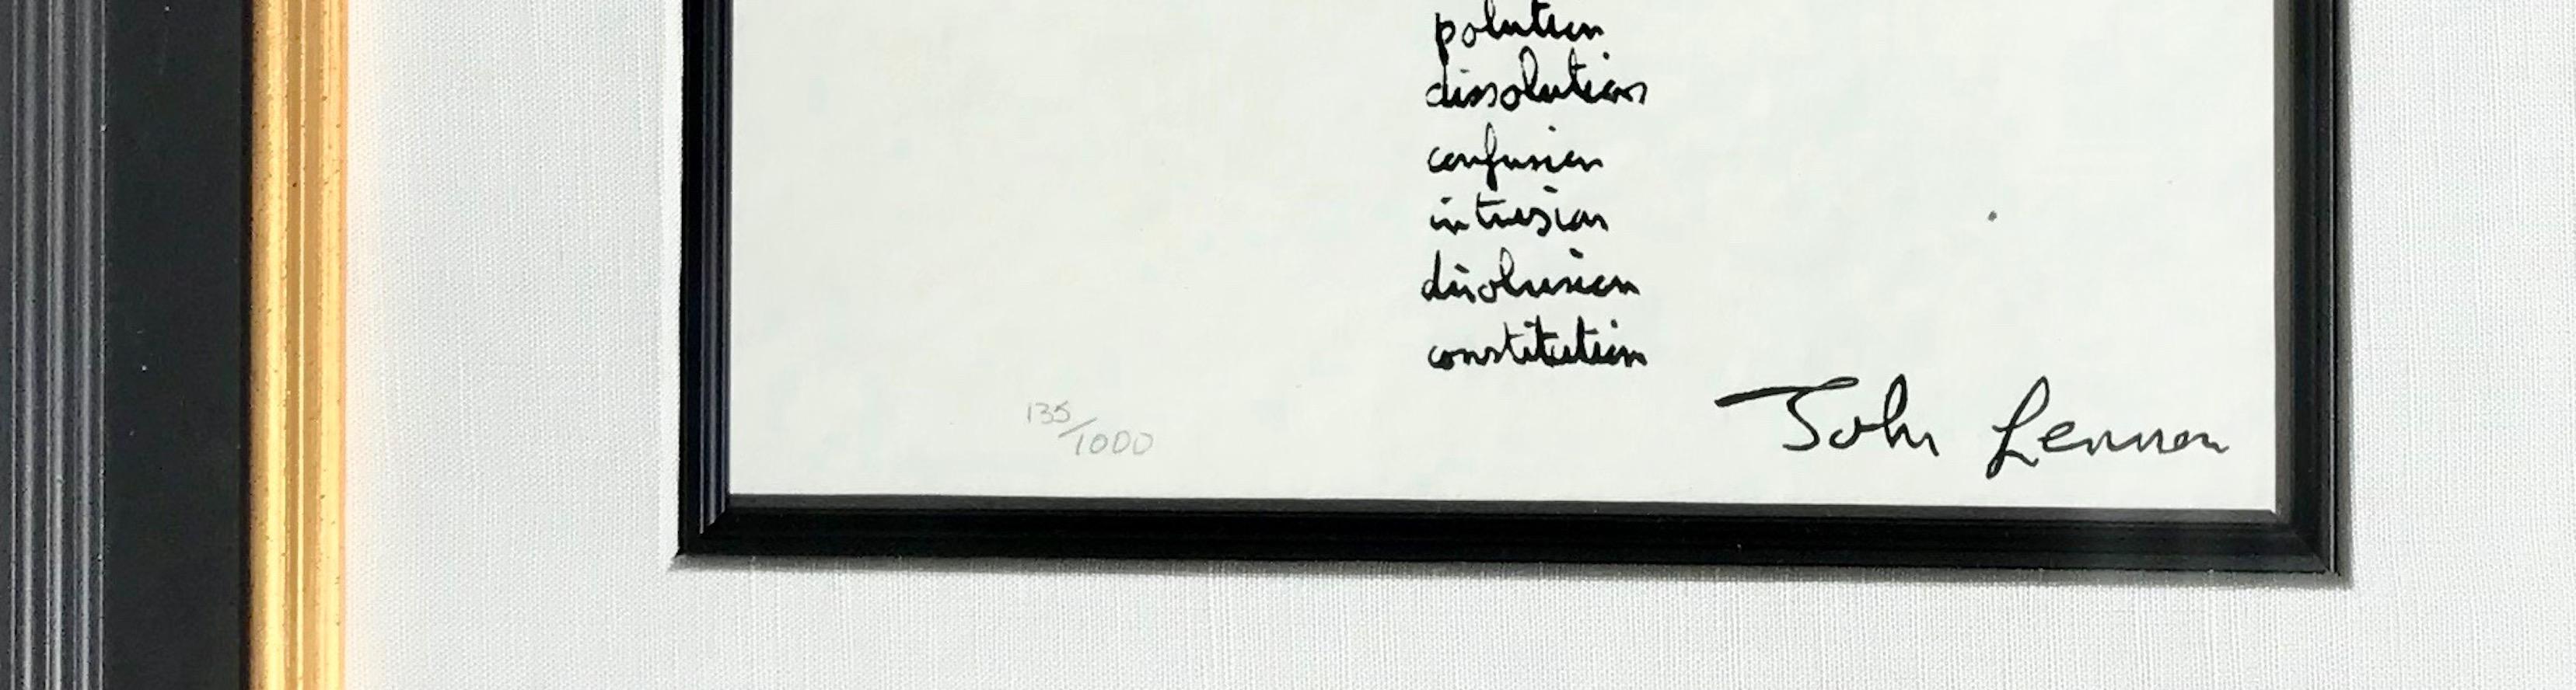 polution
dissolution
confusion
intrusion
disolusion
constitution
135/1000
John Lennon